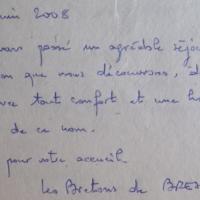 uin 2008
vons passé un agréable séjou
on que nous découvrons, d
vec tout confort et une h
de ce nom.
pour votre accueil.
Les Bretons de BRE